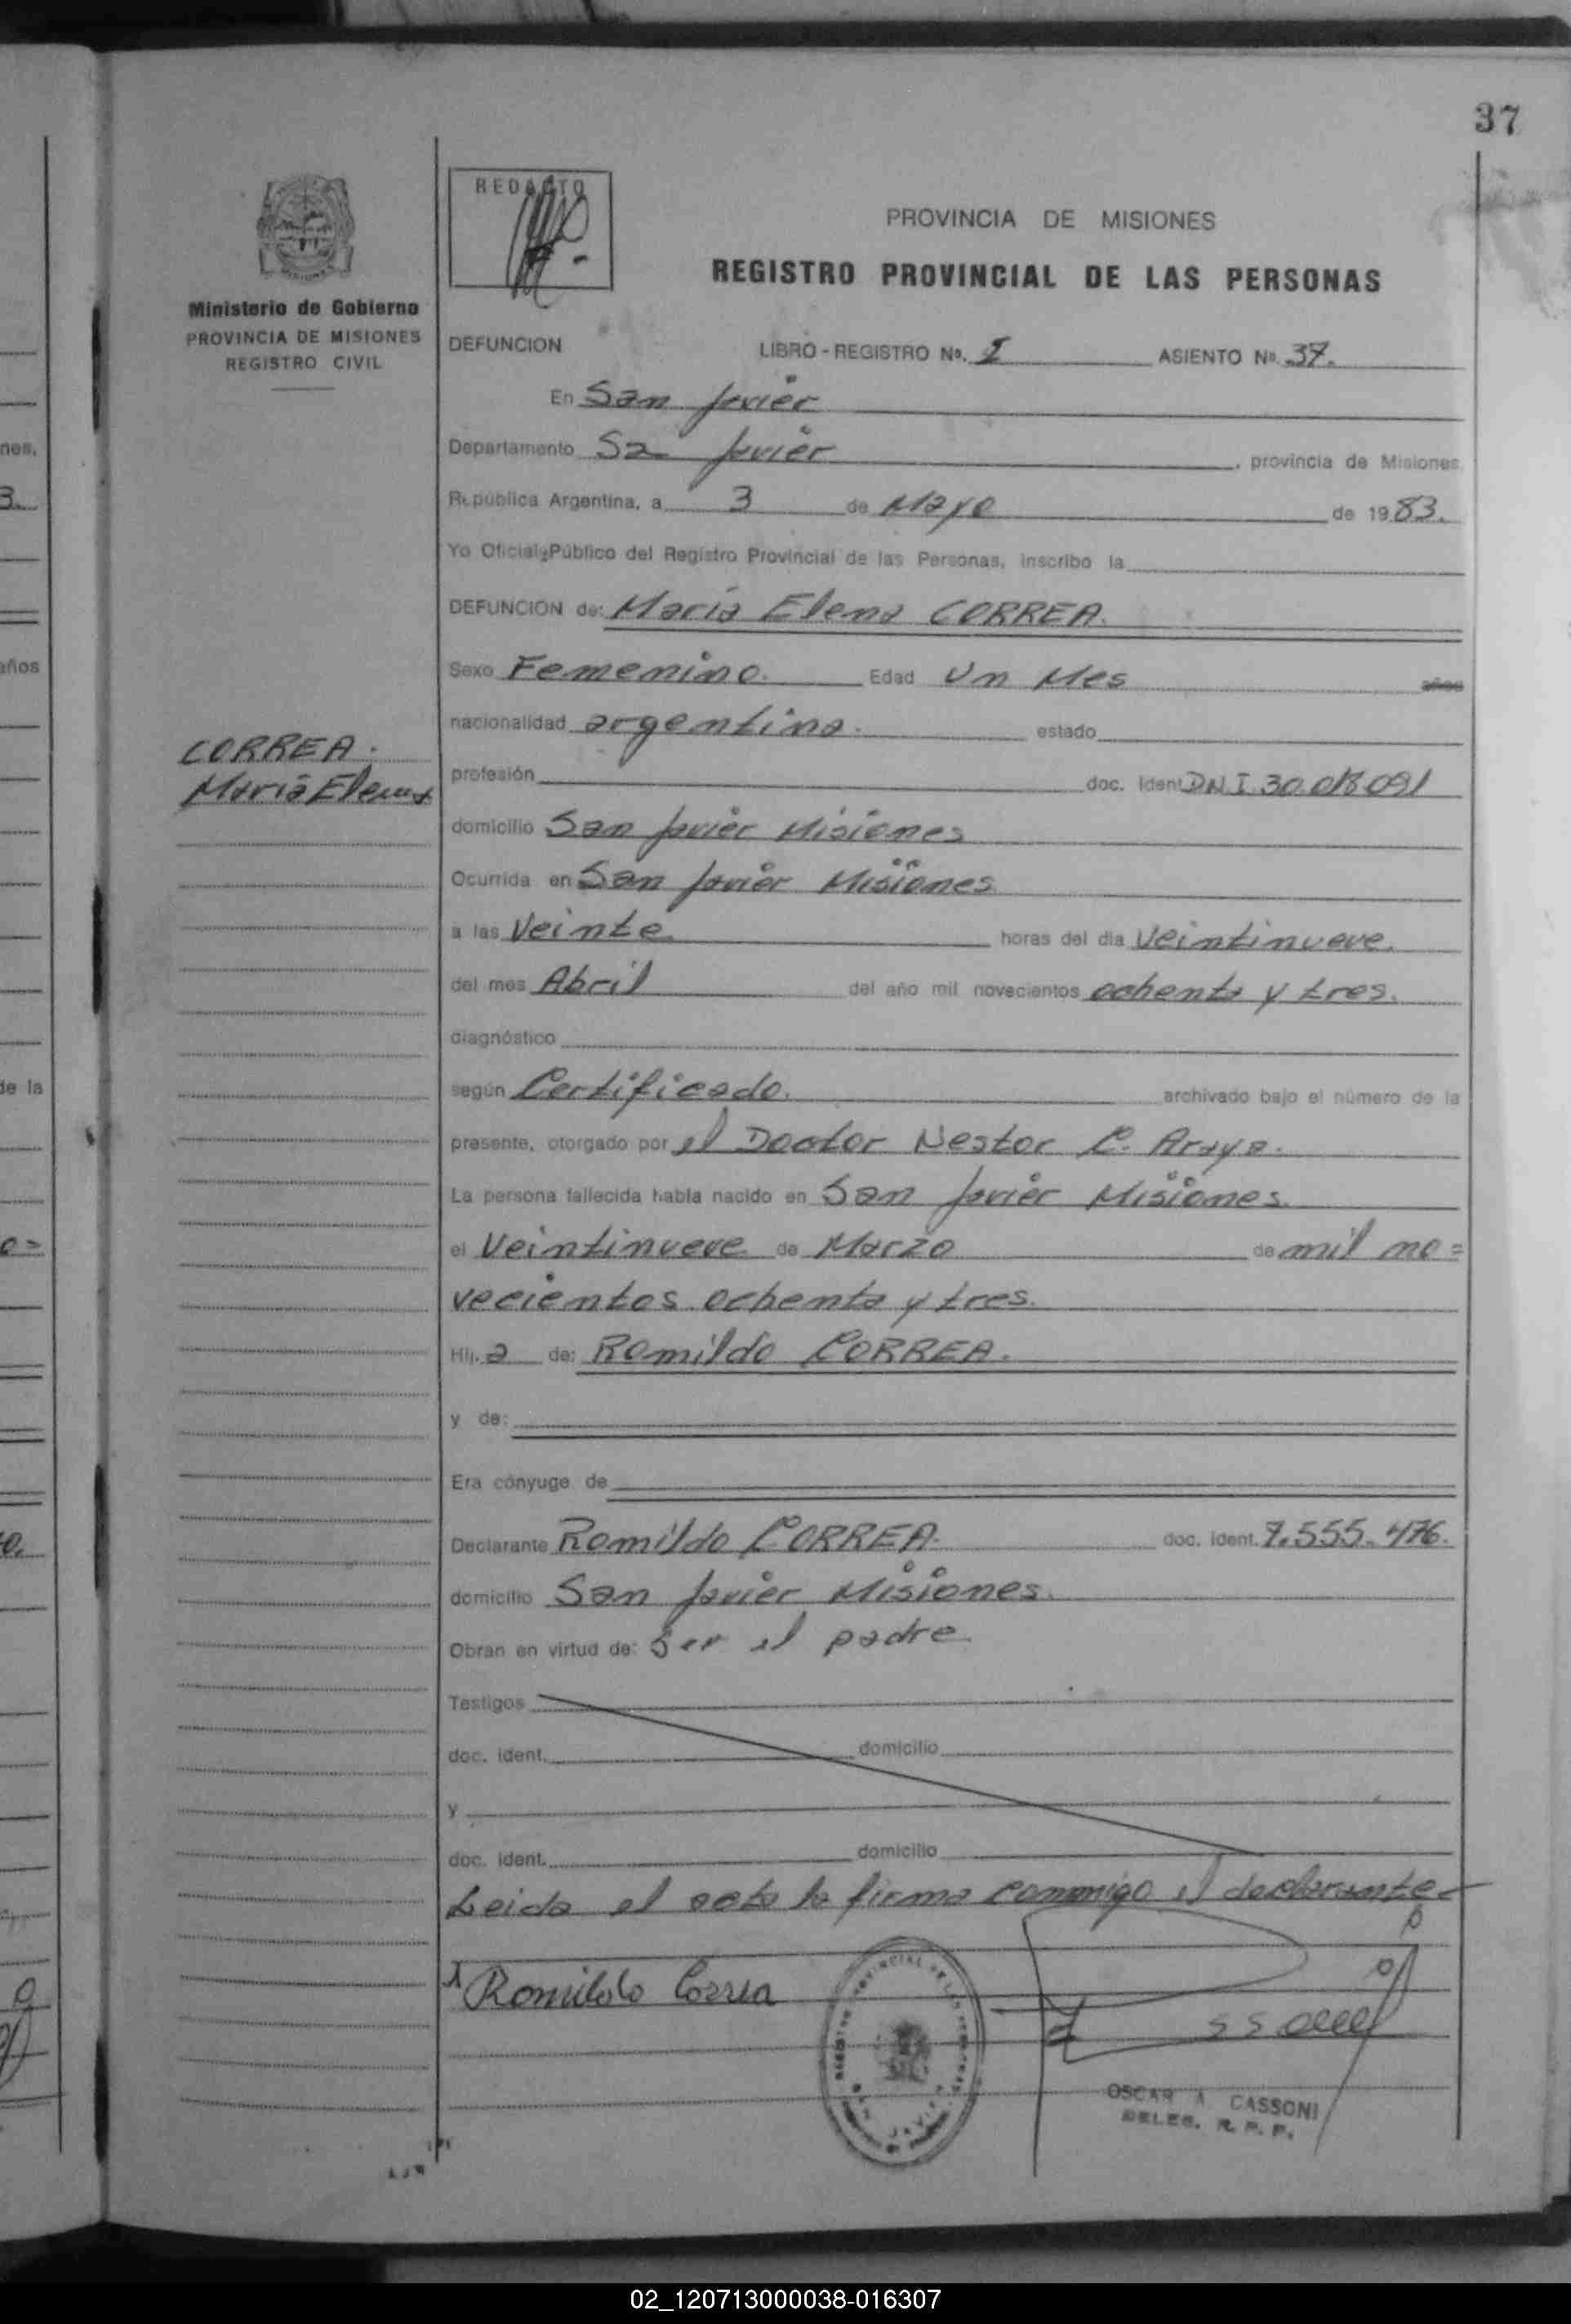 37
REDACTO
PROVINCIA DE MISIONES
REGISTRO PROVINCIAL DE LAS PERSONAS
Ministerio de Gobierno
PROVINCIA DE MISIONES
REGISTRO CIVIL
DEFUNCION LIBRO - REGISTRO Nº. I ASIENTO Nº. 37.
En San Javier
Departamento Sa Javier, provincia de Misiones
República Argentina, a 3 de Mayo de 1983.
Yo Oficial Público del Registro Provincial de las Personas, inscribo la
DEFUNCION de: María Elena CORREA.
Sexo Femenino. Edad Un Mes años
nacionalidad argentina. estado
CORREA.
María Elena
profesión doc. ident DNI. 30.018.091
domicilio San Javier Misiones
Ocurrida en San Javier Misiones
a las Veinte horas del dia Veintinueve.
del mes Abril del año mil novecientos ochenta y tres.
diagnóstico
según Certificado. archivado bajo el número de la
presente, otorgado por el Doctor Nestor C. Araya.
La persona fallecida había nacido en San Javier Misiones.
el Veintinueve de Marzo de mil no=
vecientos ochenta y tres.
Hij.a de: Romildo CORREA.
y de:
Era cónyuge de
Declarante Romildo CORREA. doc. ident. 7.555.476.
domicilio San Javier Misiones.
Obran en virtud de: Ser el padre.
Testigos
doc. ident. domicilio
y
doc. ident. domicilio
Leida el acta la firma conmigo el declarante
Romildo Correa
OSCAR A CASSONI
DELEG. R. P. P.
nes,
3.
años
de la
o=
o.
02_120713000038-016307